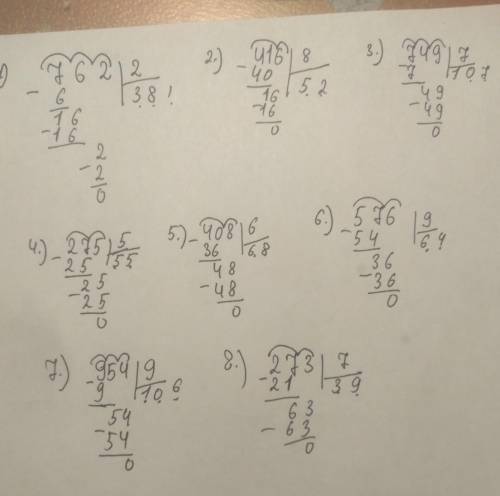 1) 762 | 2
- 6 | 381
16
- 16
2
- 2
0
2.) - 416 | 8
40 | 52
16
- 16
0
3.) - 749 | 7
7 | 107
49
- 49
0
4.) - 275 | 5
25 | 55
25
- 25
0
5.) - 408 | 6
36 | 68
48
- 48
0
6.) - 576 | 9
54 | 64
36
- 36
0
7.) - 954 | 9
9 | 106
54
- 54
0
8.) - 273 | 7
21 | 39
63
- 63
0